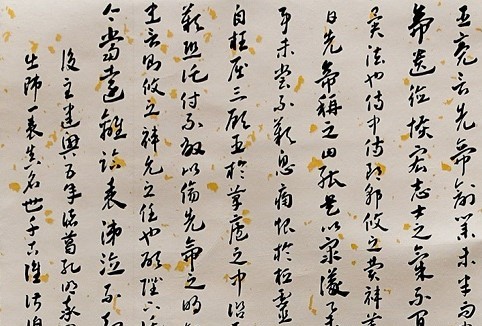 臣亮言先帝創業未半而中
帝遺德恢宏志士之氣不宜
異法也侍中侍郎郭攸之費禕董
日先帝稱之曰能是以眾議舉
事未嘗不歎息痛恨於桓靈
自枉屈三顧臣於草廬之中諮
歎恐託付不效以傷先帝之明
主言則攸之禕允之任也願陛下託
今當遠離臨表涕泣不知
後主建興五年諸葛孔明
出師一表真名世千古誰